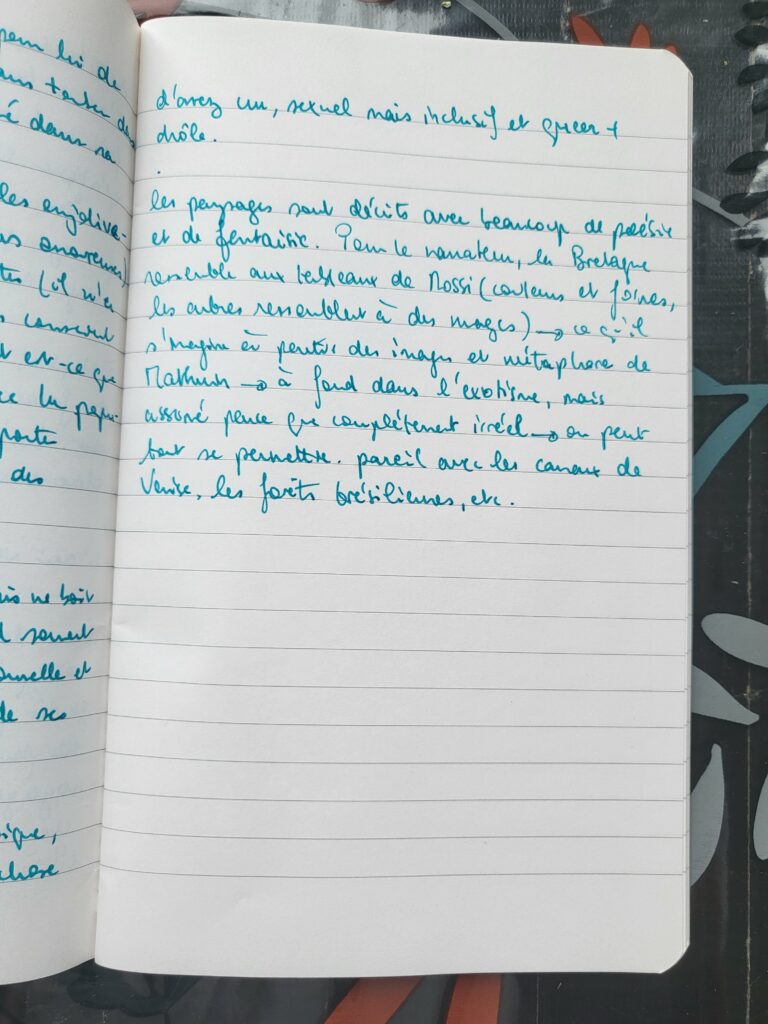 pour lui de
dans
é dans sa
les enjolive-
amoureuses)
tes (il n'es
consent
t est-ce que
porte
des
ne boit
souvent
nnelle et
de ses
sique,
chose
d'assez cru, sexuel mais inclusif et queer +
drôle.
.
les paysages sont décrits avec beaucoup de poésie
et de fantaisie. Pour le narrateur, la Bretagne
ressemble aux tableaux de Mossi (couleurs et formes,
les arbres ressemblent à des nuages) → ce qu'il
s'imagine à partir des images et métaphore de
Mathurin → à fond dans l'exotisme, mais
assumé parce que complètement irréel → on peut
tout se permettre. pareil avec les canaux de
Venise, les forêts brésiliennes, etc.